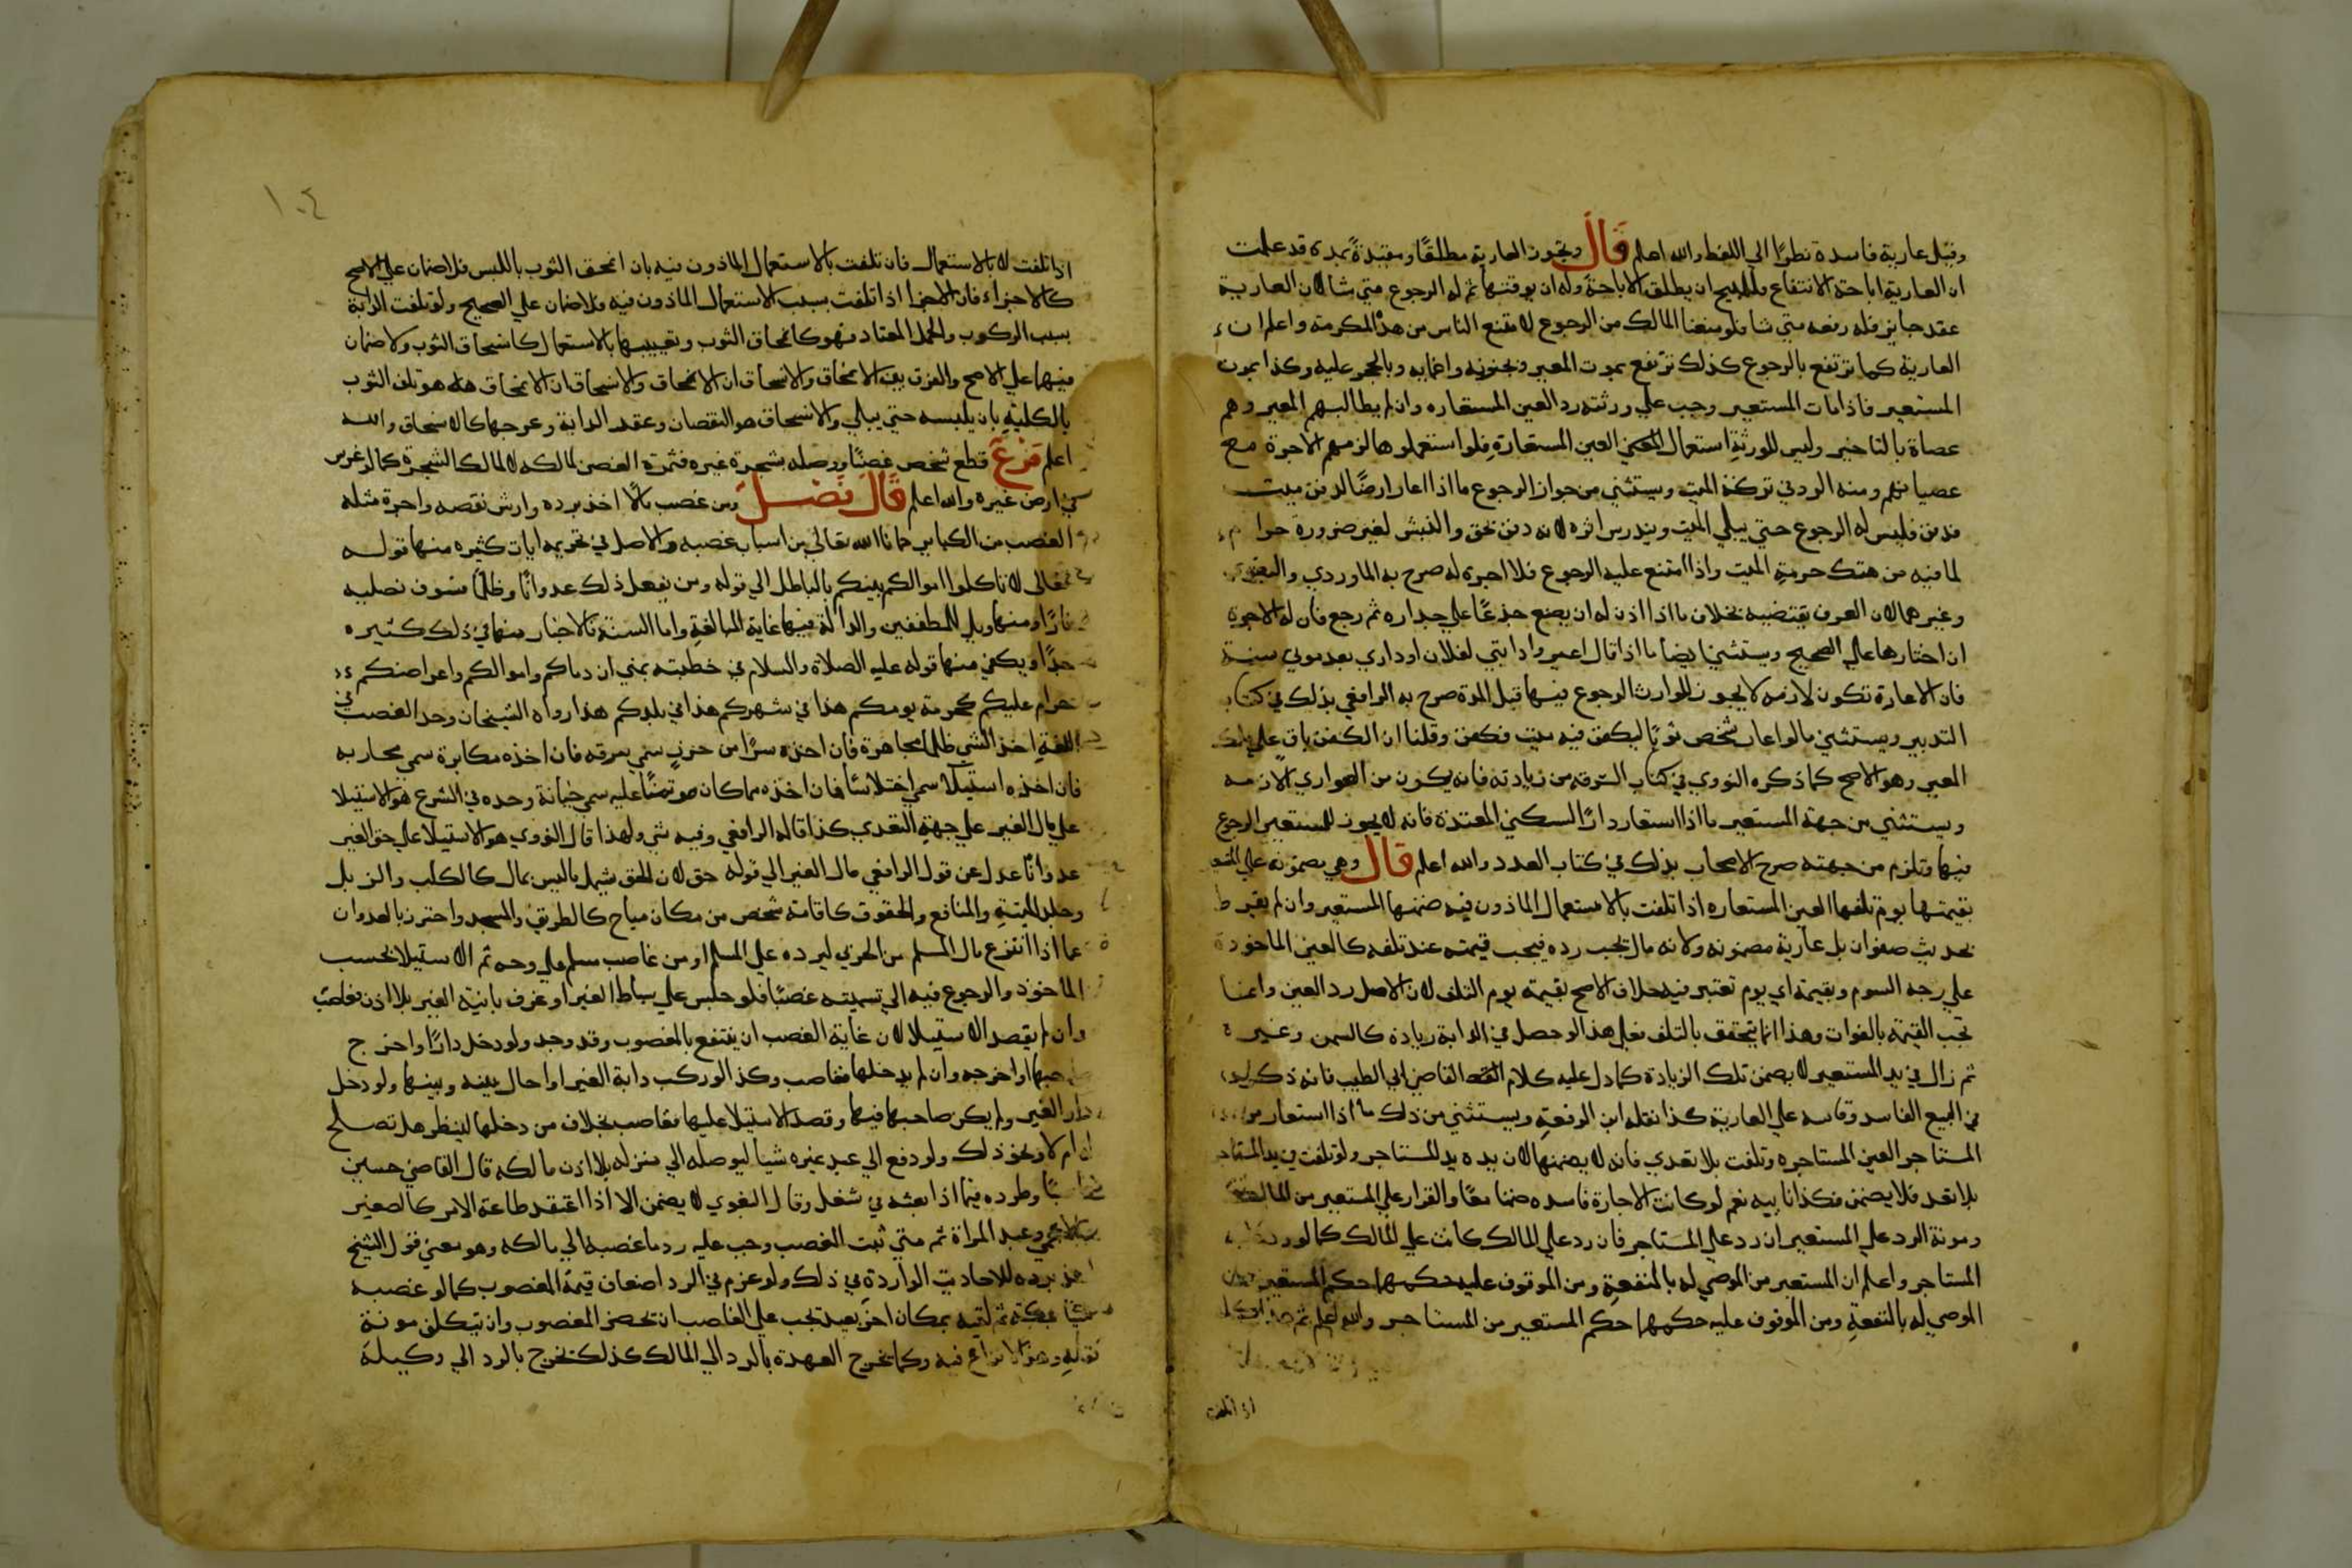 وقيل عارية فاسدة نظرًا الي اللفظ والله اعلم قال وتجوز العارية مطلقًا ومقيدةً بمدة قد علمت
ان العارية اباحة الانتفاع فللمبيح ان يطلق الاباحة وله ان يوقتها ثم له الرجوع متي شا لان العارية
عقد جايز فله رفعه متي شا فلو منعنا المالك من الرجوع لامتنع الناس من هذه المكرمة واعلم ان
العارية كما ترتفع بالرجوع كذلك ترتفع بموت المعير وبجنونه واغمايه وبالحجر عليه وكذا بموت
المستعير فاذا مات المستعير وجب علي ورثته رد العين المستعاره وان لم يطالبهم المعير وهم
عصاة بالتاخير وليس للورثة استعمال العين المستعارة فلو استعملوها لزمهم الاجرة مع
عصيانهم ومنه الرد في تركة الميت ويستثني من جواز الرجوع ما اذا اعار ارضًا لدفن ميت
فدفن فليس له الرجوع حتي يبلي الميت ويندرس اثره لانه دفن بحق والنبش لغير ضرورة حرام
لما فيه من هتك حرمة الميت واذا امتنع عليه الرجوع فلا اجره له صرح به الماوردي والبغوي
وغيرهما لان العرف يقتضيه بخلاف ما اذا اذن له ان يضع جذعًا علي جداره ثم رجع فان له الاجرة
ان اختارها علي الصحيح ويستثني ايضا ما اذا قال اعيروا دابتي لفلان او داري بعد موتي سنة
فان الاعارة تكون لازمه لا يجوز للوارث الرجوع فيها قبل المدة صرح به الرافعي بذلك في كتاب
التدبير ويستثني ما لو اعار شخص ثوبًا ليكفن فيه ميت فكفن وقلنا ان الكفن باق علي ملك
المعير وهو الاصح كما ذكره النووي في كتاب السرقة من زيادته فانه يكون من العواري اللازمه
ويستثني من جهة المستعير ما اذا استعار دارًا لسكني المعتدة فانه لا يجوز للمستعير الرجوع
فيها وتلزم من جهته صرح الاصحاب بذلك في كتاب العدد والله اعلم قال وهي مضمونه علي المستعير
بقيمتها يوم تلفها العين المستعاره اذا تلفت لا بالاستعمال الماذون فيه ضمنها المستعير وان لم يفرط
لحديث صفوان بل عارية مضمونه ولانه مال يجب رده فيجب قيمته عند تلفه كالعين الماخوذة
علي وجه السوم وبقيمة اي يوم تعتبر فيه خلاف الاصح بقيمة يوم التلف لان الاصل رد العين وانما
تجب القيمة بالفوات وهذا انما يتحقق بالتلف فعلي هذا لو حصل في الدابة زيادة كالسمن وغيره
ثم زال في يد المستعير لا يضمن تلك الزيادة كما دل عليه كلام القاضي ابي الطيب فانه ذكره
في البيع الفاسد وقاسه علي العارية كذا نقله ابن الرفعة ويستثني من ذلك ما اذا استعار من
المستاجر العين المستاجره وتلفت بلا تعدي فانه لا يضمنها لان يده يد المستاجر ولو تلفت في يد المستاجر
بلا تعد فلا يضمن فكذا نايبه نعم لو كانت الاجارة فاسده ضمنا معًا والقرار علي المستعير من
ومونة الرد علي المستعير ان رد علي المستاجر فان رد علي المالك كانت علي المالك كما لو رد عليه
المستاجر واعلم ان المستعير من الموصي له بالمنفعة ومن الموقوف عليه حكمهما حكم المستعير
الموصي له بالمنفعة ومن الموقوف عليه حكمهما حكم المستعير من المستاجر والله اعلم ثم
اذا تلفت
١٠٤
اذا تلفت لا بالاستعمال فان تلفت بالاستعمال الماذون فيه بان انمحق الثوب باللبس فلا ضمان علي الاصح
كالاجزاء فان الاجزا اذا تلفت بسبب الاستعمال الماذون فيه فلا ضمان علي الصحيح ولو تلفت الدابة
بسبب الركوب والحمل المعتاد فهو كانمحاق الثوب وتعييبها بالاستعمال كانسحاق الثوب ولا ضمان
فيها علي الاصح والفرق بين الانمحاق والانسحاق ان الانمحاق هو تلف الثوب
بالكلية بان يلبسه حتي يبلي والانسحاق هو النقصان وعقد الدابة وعرجها كالانسحاق والله
اعلم فرع قطع شخص غصنًا ووصله بشجرة غيره فثمرة الغصن لمالكه لا لمالك الشجرة كما لو غرس
في ارض غيره والله اعلم قال فصل ومن غصب مالا اخذ برده وارش نقصه واجرة مثله
الغصب من الكباير حمانا الله تعالي من اسباب غضبه والاصل في تحريمه ايات كثيره منها قوله
تعالى لا تاكلوا اموالكم بينكم بالباطل الي قوله ومن يفعل ذلك عدوانًا وظلمًا فسوف نصليه
نارًا ومنها ويل للمطففين والدالة فيها غاية المبالغة واما السنة فالاخبار منها في ذلك كثيره
جدًا ويكفي منها قوله عليه الصلاة والسلام في خطبته بمني ان دماكم واموالكم واعراضكم
حرام عليكم كحرمة يومكم هذا في شهركم هذا في بلدكم هذا رواه الشيخان وحد الغصب في
اللغة اخذ الشي ظلما مجاهرة فان اخذه سرًا من حرزٍ سمي سرقه فان اخذه مكابرة سمي محاربه
فان اخذه استيلا سمي اختلاسًا فان اخذه مما كان موتمنًا عليه سمي خيانة وحده في الشرع هو الاستيلا
علي مال الغير علي جهة التعدي كذا قاله الرافعي وفيه شي ولهذا قال النووي هو الاستيلا علي حق الغير
عدوانًا عدل عن قول الرافعي مال الغير الي قوله حق لان الحق يشمل ما ليس بمال كالكلب والزبل
وجلد الميتة والمنافع والحقوق كاقامة شخص من مكان مباح كالطريق والمسجد واحترز بالعدوان
عما اذا انتزع مال المسلم من الحربي ليرده علي المسلم او من غاصب مسلم علي وجه ثم الاستيلا بحسب
الماخوذ والرجوع فيه الي تسميته غصبًا فلو جلس علي بساط الغير او غرف بانية الغير بلا اذن فغاصب
وان لم يقصد الاستيلا لان غاية الغصب ان ينتفع بالمغصوب وقد وجد ولو دخل دارًا واخرج
صاحبها او اخرجه وان لم يدخلها فغاصب وكذا لو ركب دابة الغير او احال بينه وبينها ولو دخل
دار الغير ولم يكن صاحبها فيها وقصد الاستيلا عليها فغاصب بخلاف من دخلها لينظر هل تصلح
له ام لا ونحو ذلك ولو دفع الي عبد غيره شيا ليوصله الي منزله بلا اذن مالكه قال القاضي حسين
وطرده فيما اذا بعثه في شغل وقال البغوي لا يضمن الا اذا اعتقد طاعة الامر كالصغير
والاعجمي وعبد المراة ثم متي ثبت الغصب وجب عليه رد ما غصبه الي مالكه وهو معني قول الشيخ
اخذ برده للاحاديث الواردة في ذلك ولو غرم في الرد اضعاف قيمة المغصوب كما لو غصب
بمكة ثم لقيه بمكان اخر بعيد تجب علي الغاصب ان يحضر المغصوب وان يتكلف مونة
نقله وهذا لا نزاع فيه وكما يخرج العهدة بالرد الي المالك كذلك يخرج بالرد الي وكيله